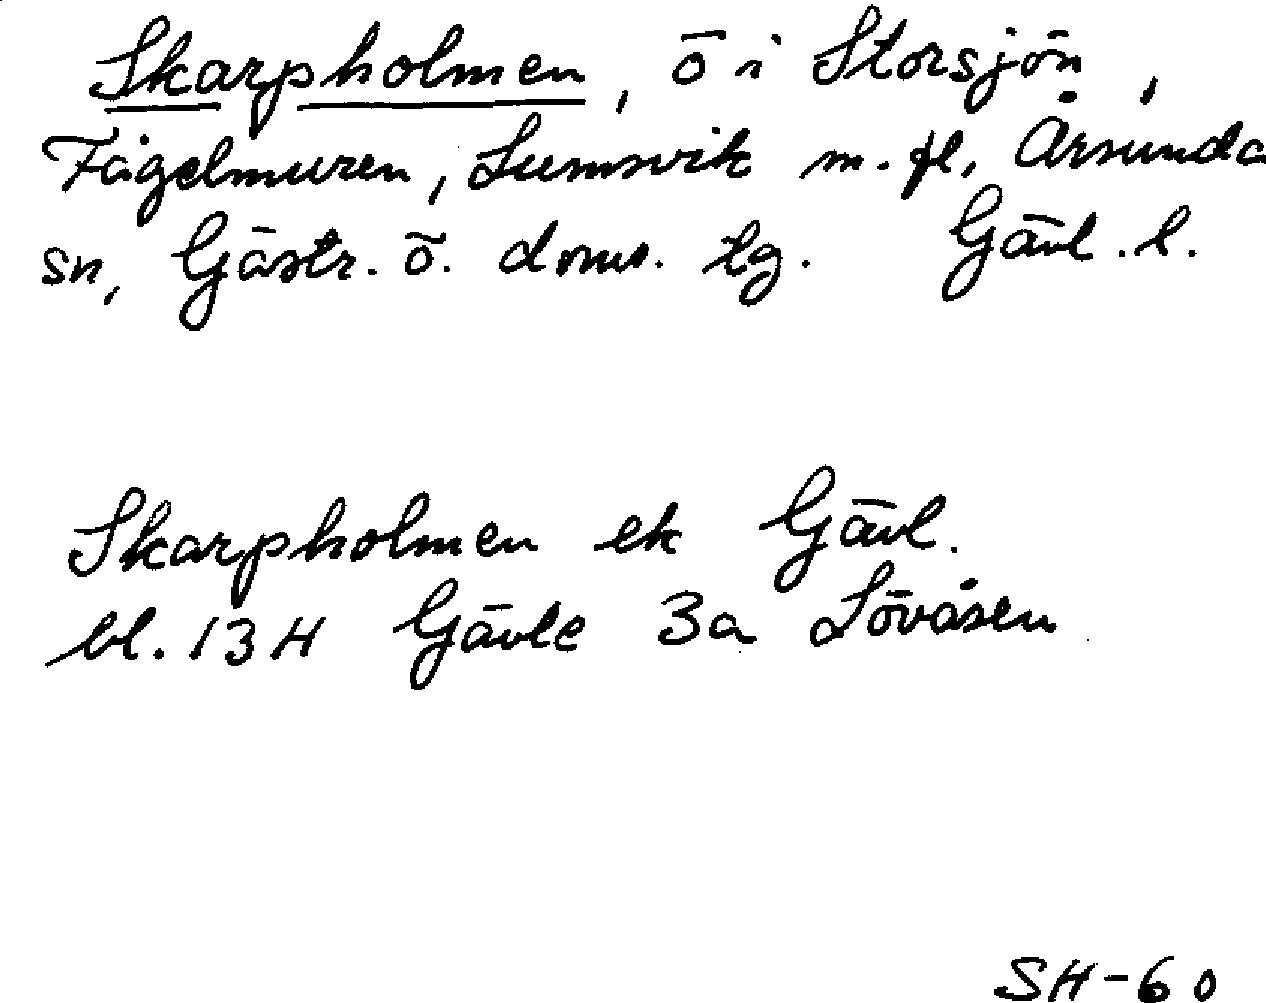 Skarpholmen, ö i Storsjön,
Fågelmuren, Lumsvik m. fl, Årsunda
sn, Gästr. ö. doms. tg. Gävl. l.
Skarpholmen ek Gävl.
bl. 13H Gävle 3a Lövåsen
SH-60